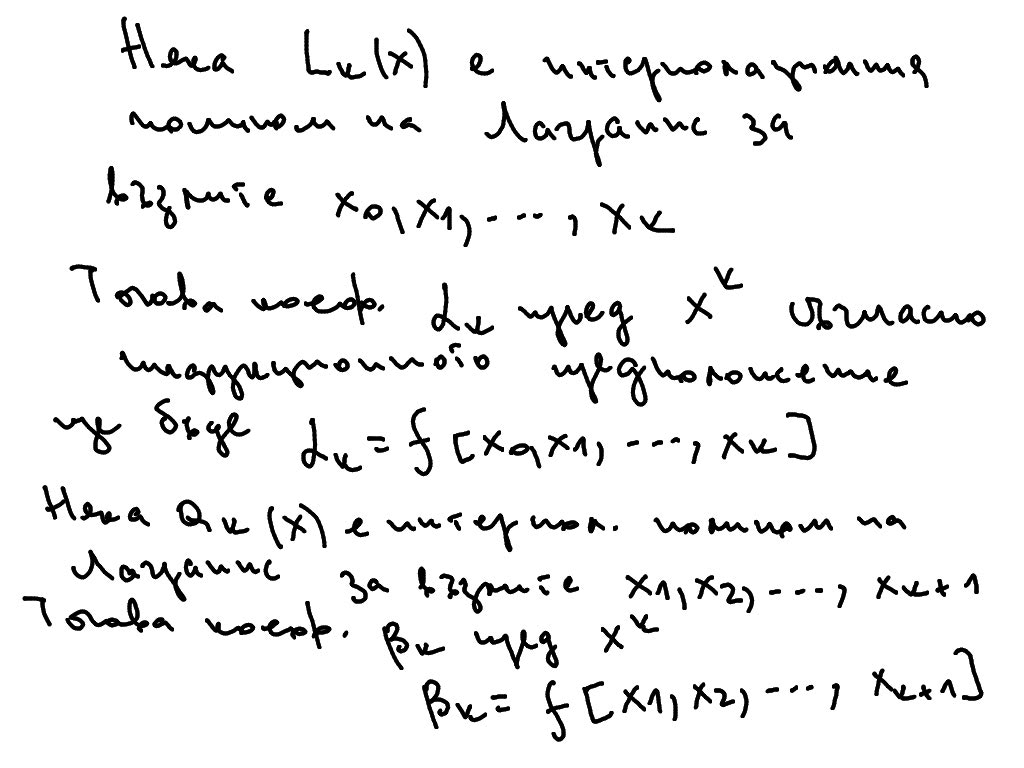 Нека L_k(x) е интерполационния
полином на Лагранж за
възлите x_0, x_1, ..., x_k
Тогава коеф. α_k пред x^k съгласно
индукционното предположение
ще бъде α_k = f[x_0, x_1, ..., x_k]
Нека Q_k(x) е интерпол. полином на
Лагранж за възлите x_1, x_2, ..., x_{k+1}
Тогава коеф. β_k пред x^k
β_k = f[x_1, x_2, ..., x_{k+1}]